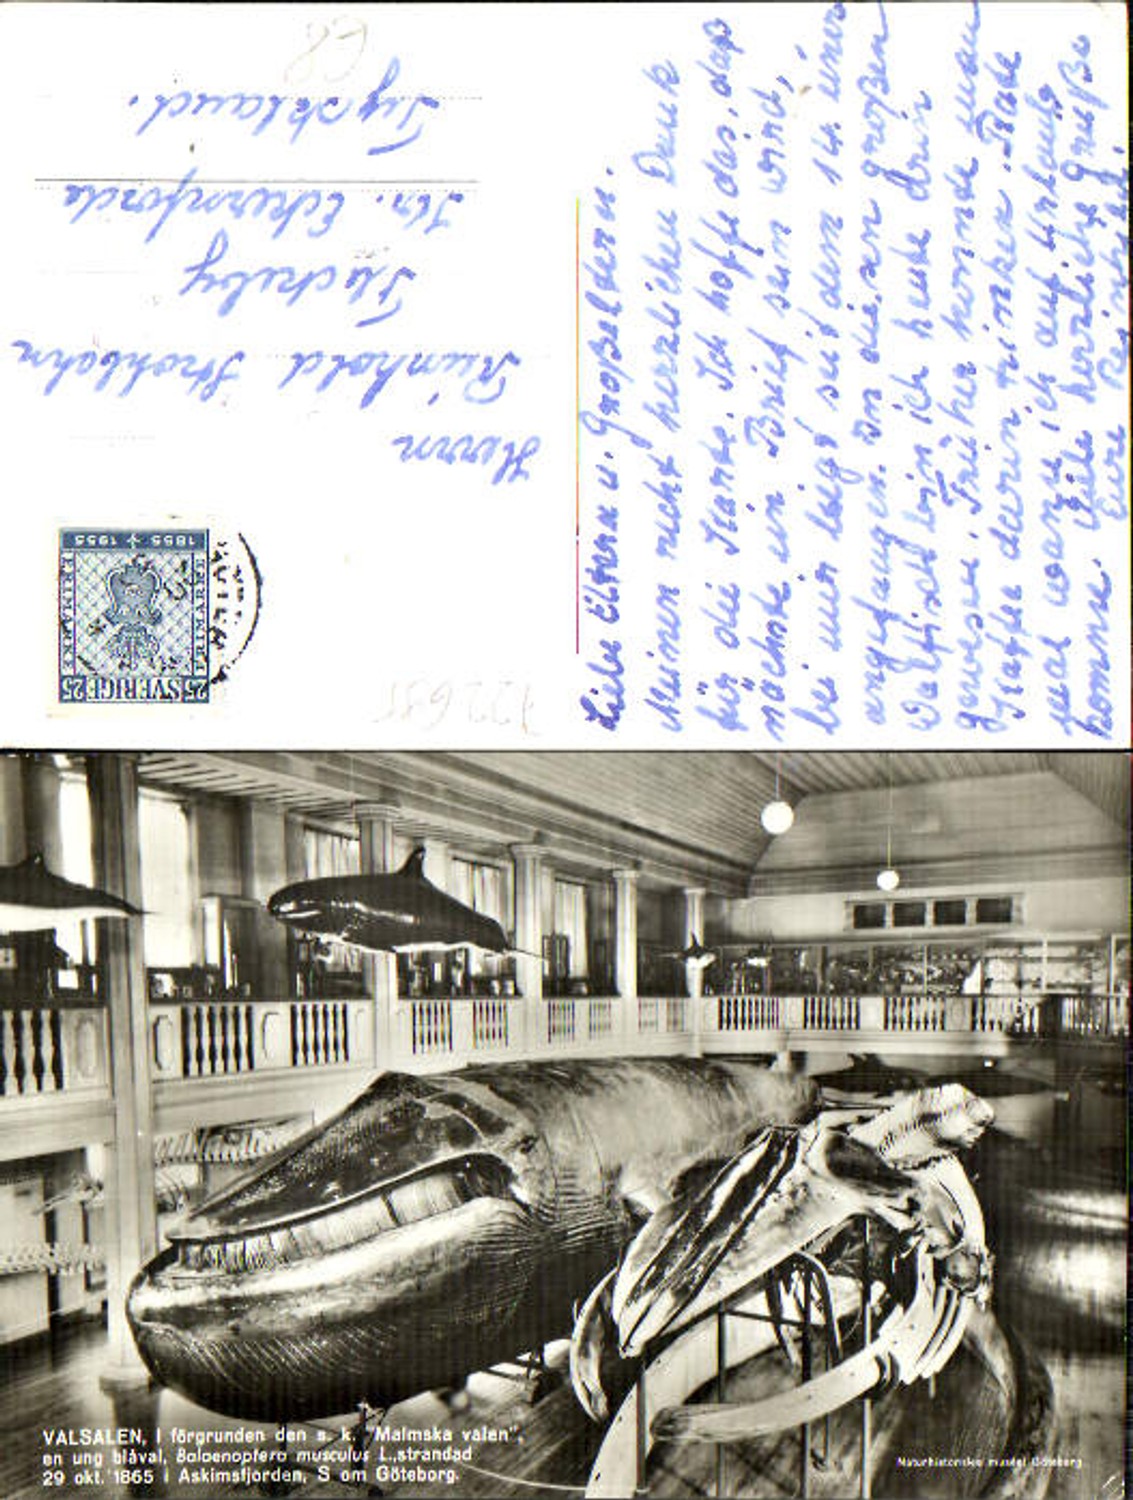 Liebe Eltern u. Großeltern.
Meinen recht herzlichen Dank
für die Karte. Ich hoffe das, daß
nächste ein Brief sein wird,
bei mir liegt seit dem 14. einer
angefangen. In diesen großen
Walfisch bin ich heute drin
gewesen. Früher konnte man
Kaffee darin trinken.
mal wann ich auf Urlaub
komme. Viele herzliche Grüße
Eure
Herrn
Reinhold Strohbehn
Fleckeby
Kr. Eckernförde
Tyskland.
68
1855 1955
FRIMÄRKE
FRIMÄRKE
25 SVERIGE 25
VALSALEN, I förgrunden den s. k. "Malmska valen",
en ung blåval, Balaenoptera musculus L., strandad
29 okt. 1865 i Askimsfjorden, S om Göteborg.
Naturhistoriska museet Göteborg